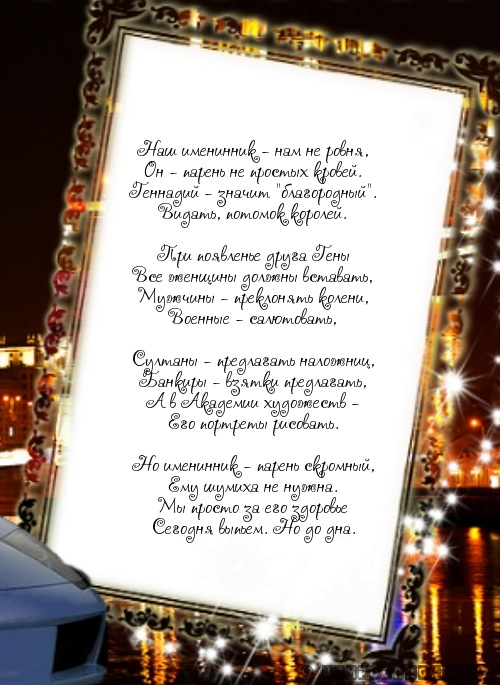 Наш именинник – нам не ровня,
Он – парень не простых кровей.
Геннадий – значит "благородный".
Видать, потомок королей.
При появленье друга Гены
Все женщины должны вставать,
Мужчины – преклонять колени,
Военные – салютовать,
Султаны – предлагать наложниц,
Банкиры – взятки предлагать,
А в Академии художеств –
Его портреты рисовать.
Но именинник – парень скромный,
Ему шумиха не нужна.
Мы просто за его здоровье
Сегодня выпьем. Но до дна.